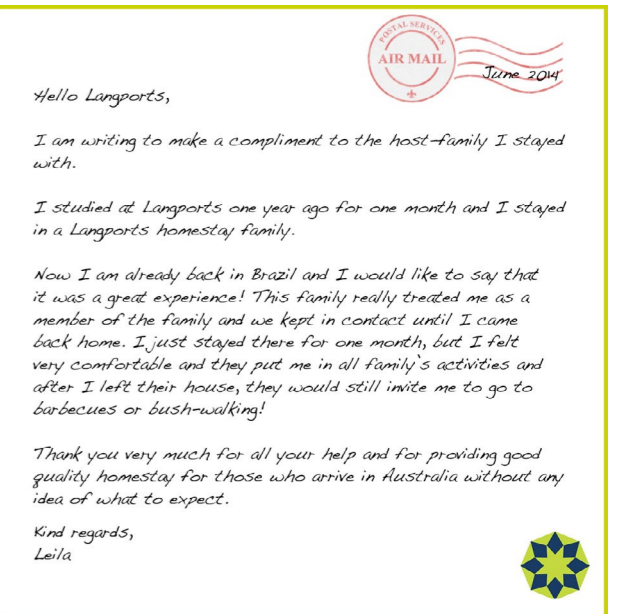 POSTAL SERVICES
AIR MAIL
June 2014
Hello Langports,
I am writing to make a compliment to the host-family I stayed
with.
I studied at Langports one year ago for one month and I stayed
in a Langports homestay family.
Now I am already back in Brazil and I would like to say that
it was a great experience! This family really treated me as a
member of the family and we kept in contact until I came
back home. I just stayed there for one month, but I felt
very comfortable and they put me in all family`s activities and
after I left their house, they would still invite me to go to
barbecues or bush-walking!
Thank you very much for all your help and for providing good
quality homestay for those who arrive in Australia without any
idea of what to expect.
Kind regards,
Leila